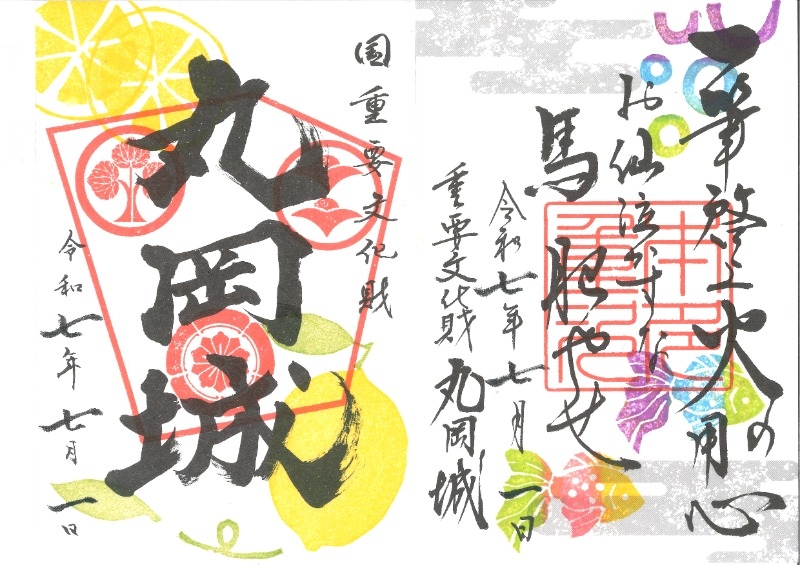 一筆啓上火の用心
お仙泣かすな
馬肥やせ
令和七年七月一日
重要文化財 丸岡城
国重要文化財
丸岡城
令和七年七月一日